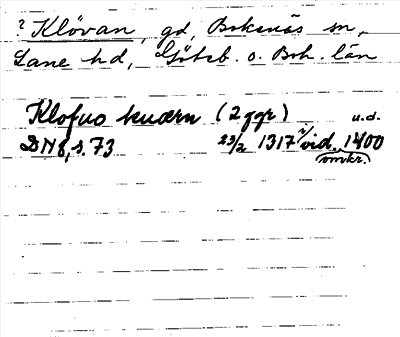 ? Klövan, gd, Bokenäs sn,
Lane hd, Göteb. o. Boh. län
Klofuo kuærn (2 ggr) u.d.
DN 8, s. 73 23/2 1317 vid. 1400
(omkr.)